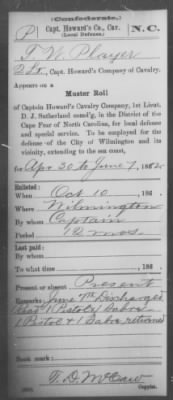 (Confederate.)
P Capt. Howard's Co., Cav. N. C.
(Local Defence.)
T. N. Player
2 Lt., Capt. Howard's Company of Cavalry.
Appears on a
Muster Roll
of Captain Howard's Cavalry Company, 1st Lieut.
D. J. Sutherland comd'g, in the District of the
Cape Fear of North Carolina, for local defence
and special service. To be employed for the
defence of the City of Wilmington and its
vicinity, extending to the sea coast,
Apr 30 to June 7, 1862
Enlisted:
When Oct 10, 186 .
Where Wilmington
By whom Captain
Period 12 mos.
Last paid:
By whom
To what time , 186 .
Present or absent Present
Remarks: June 7th Discharged
1 Pistol & 1 Sabre returned
Book mark:
T. D. McCaw
Copyist.